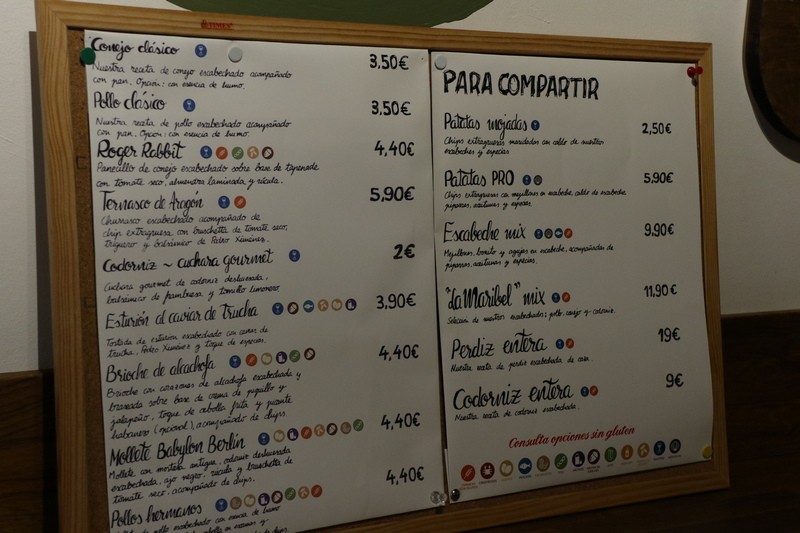 Conejo clásico 3,50€
Nuestra receta de conejo escabechado acompañado
con pan. Opción: con esencia de humo.
Pollo clásico 3,50€
Nuestra receta de pollo escabechado acompañado
con pan. Opción: con esencia de humo.
Roger Rabbit 4,40€
Panecillo de conejo escabechado sobre base de tapenade
con tomate seco, almendra laminada y rúcula.
Ternasco de Aragón 5,90€
Churrasco escabechado acompañado de
chip extragruesa con bruschetta de tomate seco,
triguero y balsámico de Pedro Ximénez.
Codorniz ~ cuchara gourmet 2€
Cuchara gourmet de codorniz deshuesada,
balsámico de frambuesa y tomillo limonero.
Esturión al caviar de trucha 3,90€
Tostada de esturión escabechado con caviar de
trucha, Pedro Ximénez y toque de especias.
Brioche de alcachofa 4,40€
Brioche con corazones de alcachofa escabechada y
braseada sobre base de crema de piquillo y
jalapeño, toque de cebolla frita y picante
habanero (opcional), acompañado de chips.
Mollete Babylon Berlin 4,40€
Mollete con mostaza antigua, codorniz deshuesada
escabechada, ajo negro, rúcula y bruschetta de
tomate seco, acompañado de chips.
Pollos hermanos 4,40€
pollo escabechado con esencia de humo
PARA COMPARTIR
Patatas mojadas 2,50€
Chips extragruesas maridadas con caldo de nuestros
escabeches y especias
Patatas PRO 5,90€
Chips extragruesas con mejillones en escabeche, caldo de escabeche,
piparras, aceitunas y especias.
Escabeche mix 9,90€
Mejillones, bonito y agujas en escabeche, acompañados de
piparras, aceitunas y especias.
"La Maribel" mix 11,90€
Selección de nuestros escabechados: pollo, conejo y codorniz.
Perdiz entera 19€
Nuestra receta de perdiz escabechada de caza.
Codorniz entera 9€
Nuestra receta de codorniz escabechada.
Consulta opciones sin gluten